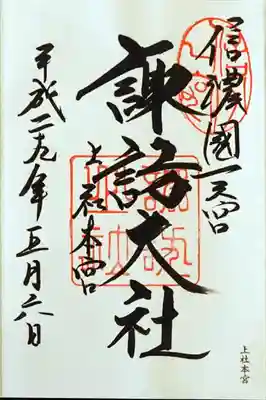 信濃國一宮
諏訪大社
上社本宮
平成二九年五月六日
上社本宮